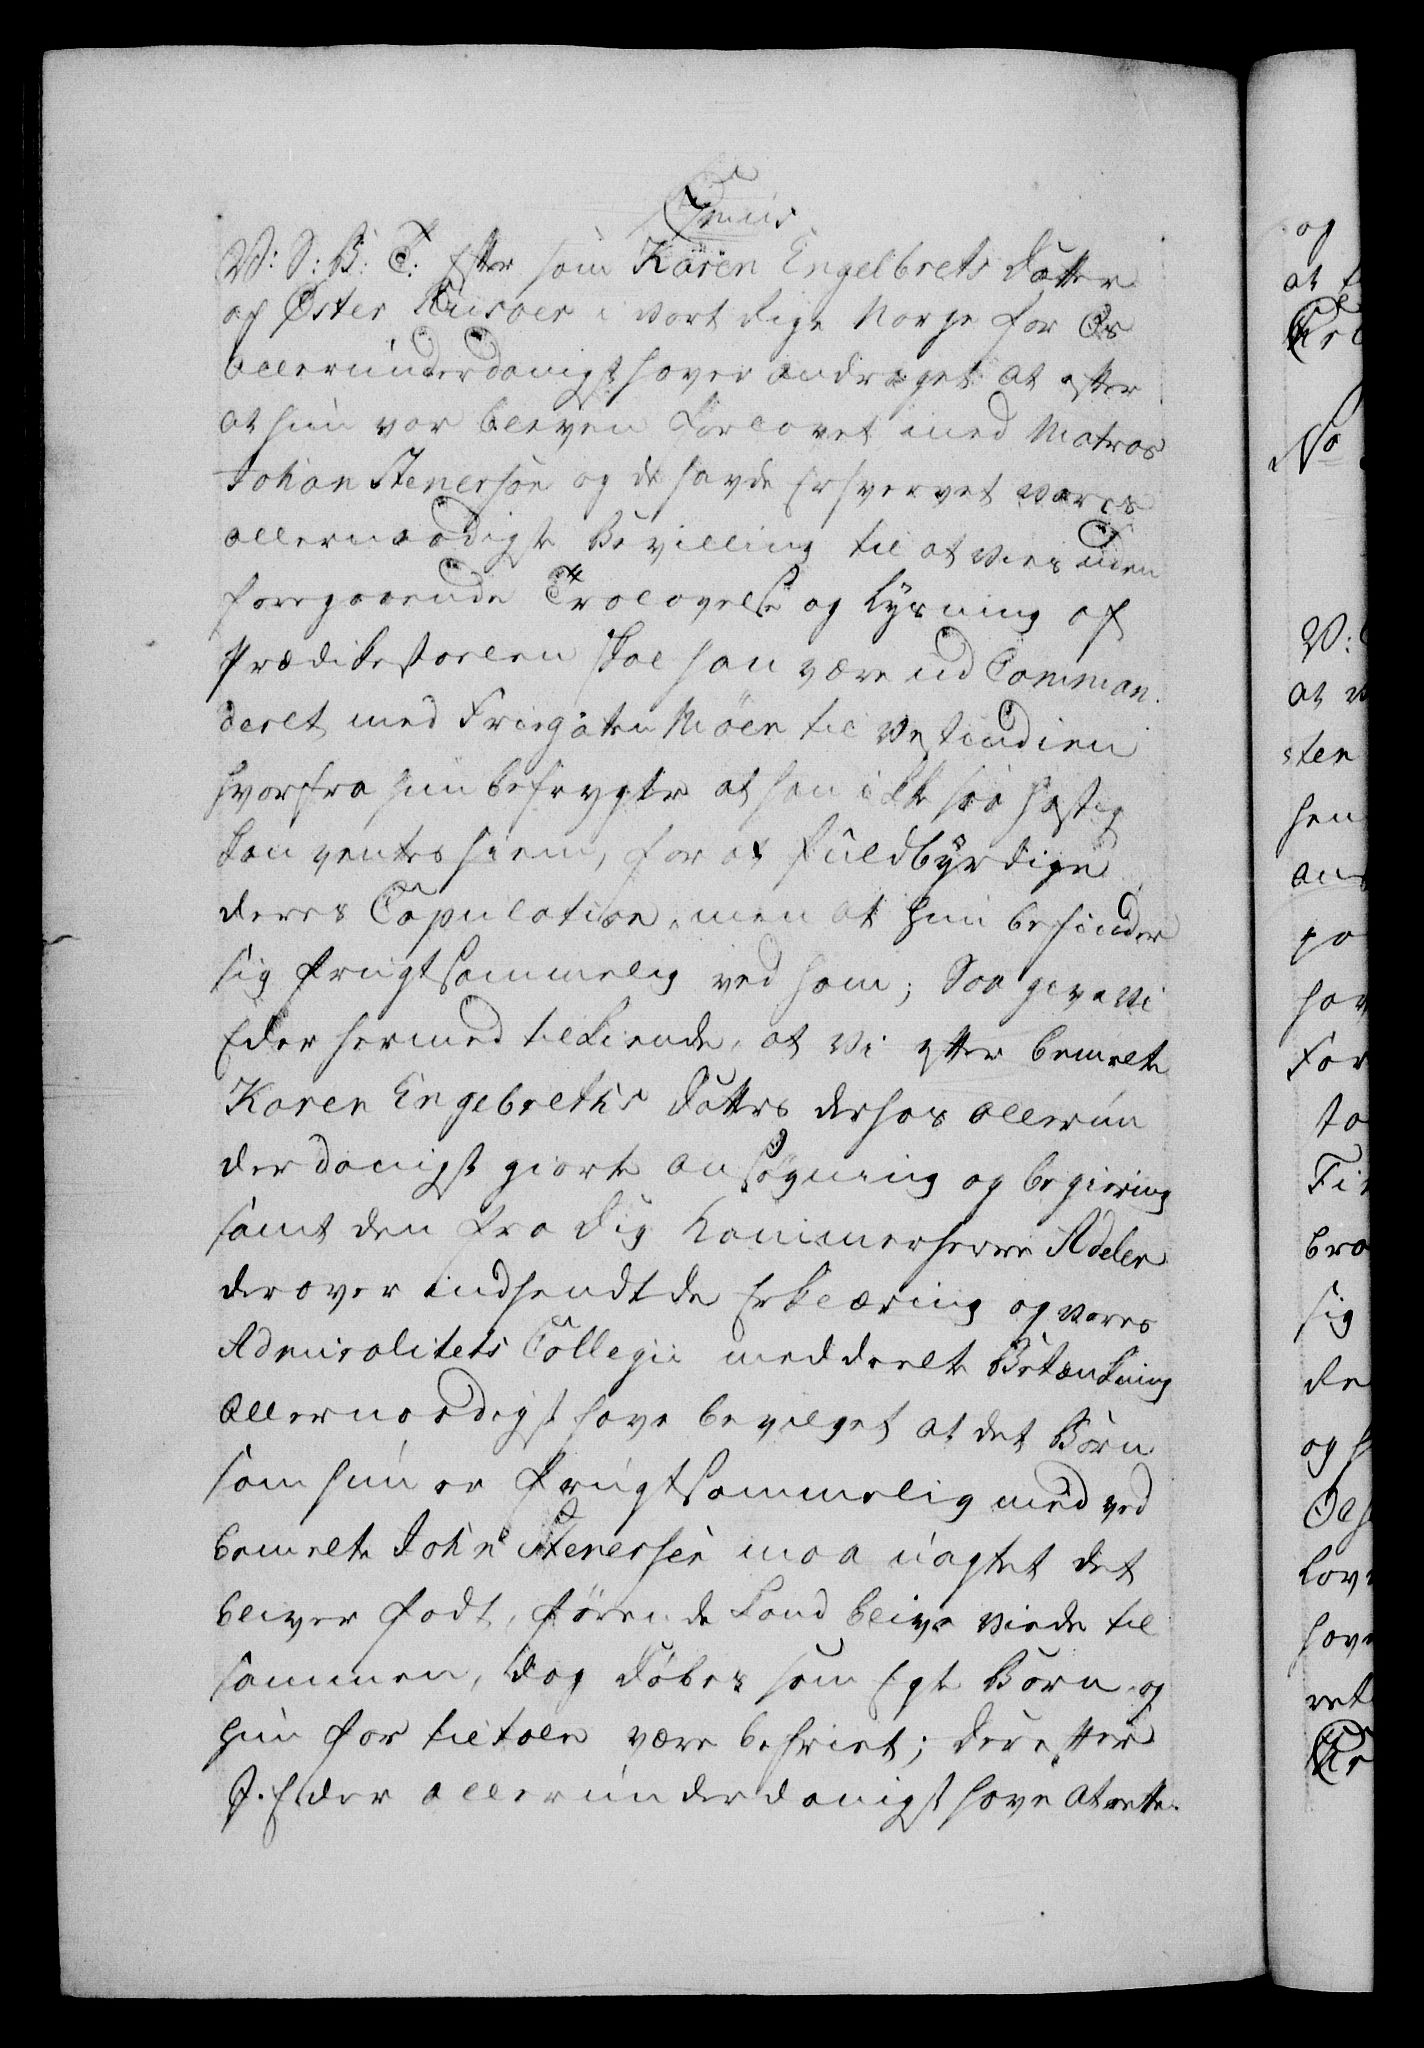 V: S: B: T: Efter som Karen Engelbrets Datter
af Øster Riisøer i Vort Rige Norge for Os
allerunderdanigst haver andraget at efter
at hun var bleven Forlovet med Matros
Johan Stenersøn og de havde Erhvervet Vores
allernaadigste Bevilling til at Vies uden
foregaaende Trolovelse og Lysning af
Prædikestoelen skal han være ud Comman-
deret med Fregaten Möen til Vestindien
hvorfra hun befrygter at han ikke saa hastig
kan ventes hiem, for at fuldbyrdige
deres Copulation, men at hun befinder
sig frugtsommelig ved ham; Saa give Vi
Eder hermed tilkiende, at Vi efter bemelte
Karen Engebreths Datters derhos allerun
derdanigst giorte ansøgning og begiering
samt den fra dig Kammerherre Adeler
derover indsendte Erklæring og Vores
Admiralitets Collegii meddeelte Betænkning
allernaadigst have bevilget at det Barn
som hun er frugtsommelig med ved
bemelte Johan Stenersen maa uagtet det
bliver født, førend de kand blive Viede til
sammen, dog døbes som Egte Barn og
hun for tiltale være befriet; derefter
I Eder allerunderdanigst have at rette.
og
at
No
V:
at
sten
hen
For
to
bra
sig
de
og
lov
hav
ret